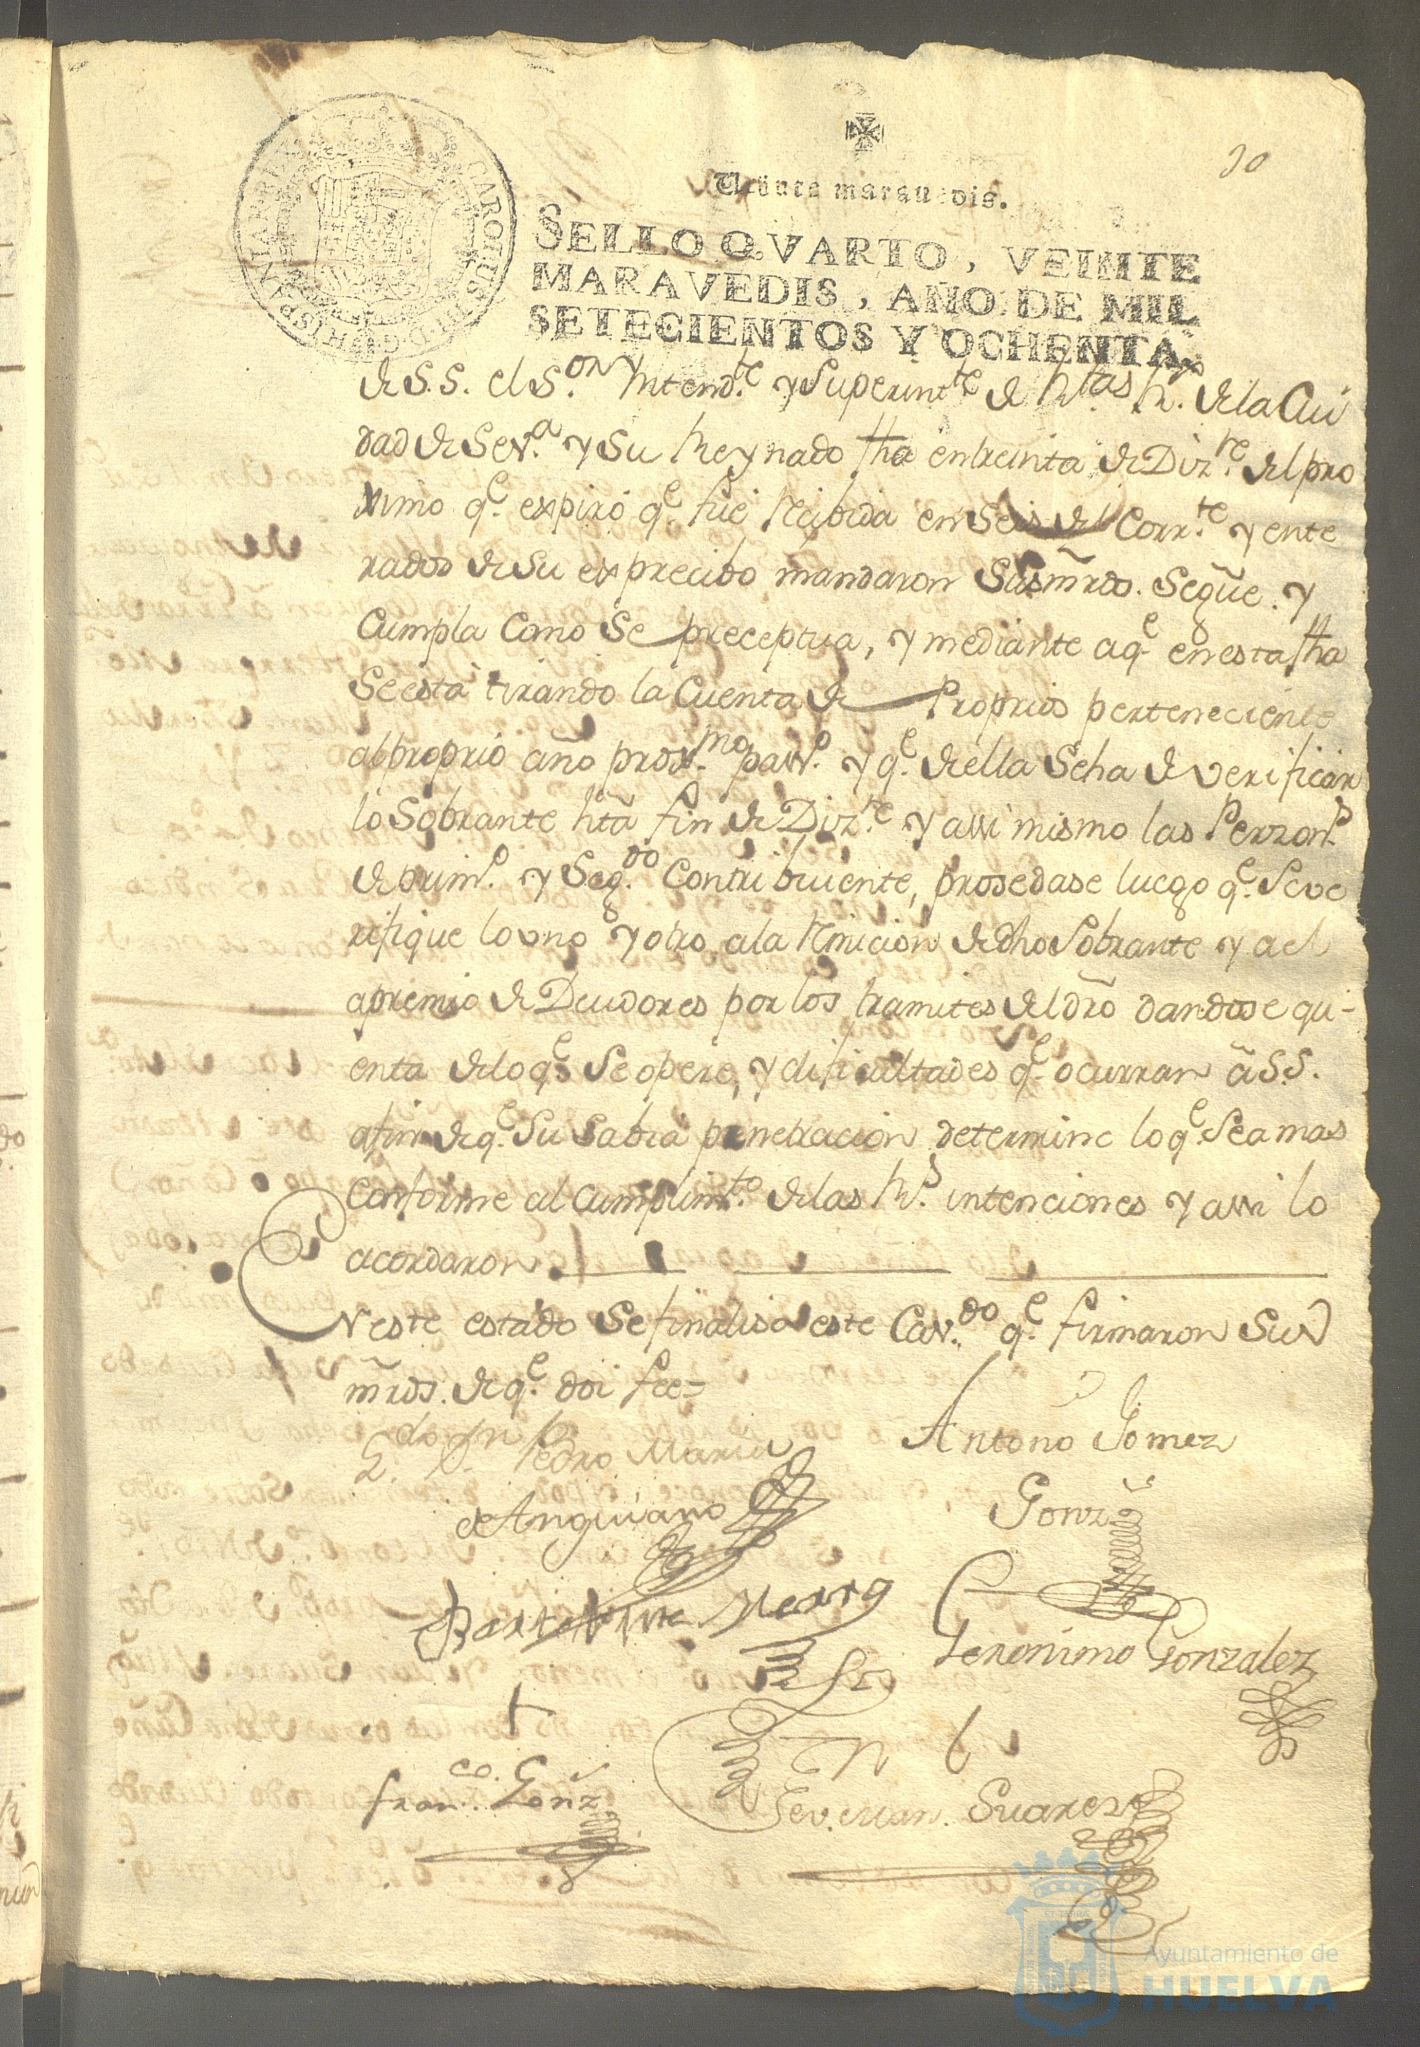 30
Veinte maravedis.
SELLO QVARTO, VEINTE
MARAVEDIS, AÑO DE MIL
SETECIENTOS Y OCHENTA.
CAROLUS III D G HISPANIAR REX
de S.S. el S.or Yntend.te y Superint.te de R.tas R. de la Ciu
dad de Sev.a y Su Reynado fha entreinta de Diz.re del pro
ximo q.e expiró q.e fué recibida en Seis del Corr.te y ente
rados de Su exprecido mandaron Sus mrds. Segũe. y
Cumpla Como Se preceptua, y mediante aq.e en esta fha
Se está tirando la Cuenta de Proprios perteneciente
al proprio año prox.mo pass.o y q.e de ella Seha de verificar
lo Sobrante htã fin de Diz.re y assi mismo las Perzon.s
de prim.o y Seg.do Contribuiente, prosedase luego q.e Seve
rifique lo uno y otro ala Remicion de dho Sobrante y a el
apremio de Deudores por los tramites del dro dandose qu-
enta de lo q.e Se opere, y dificultades q.e ocurran ã S.S.
afin de q.e Su Sabia penetracion determine lo q.e Sea mas
Conforme al Cumplim.to de las R.s intenciones y assi lo
acordaron
En este estado Se finalisó este Cav.do q.e firmaron Sus
mrds. de q.e doi fee=
L.do Dn Pedro Maria
de Anguiano
Antonio Gomez
Gonz
Geronimo Gonzalez
Fran.co Gonz
Sev. Suarez
Ayuntamiento de
HUELVA